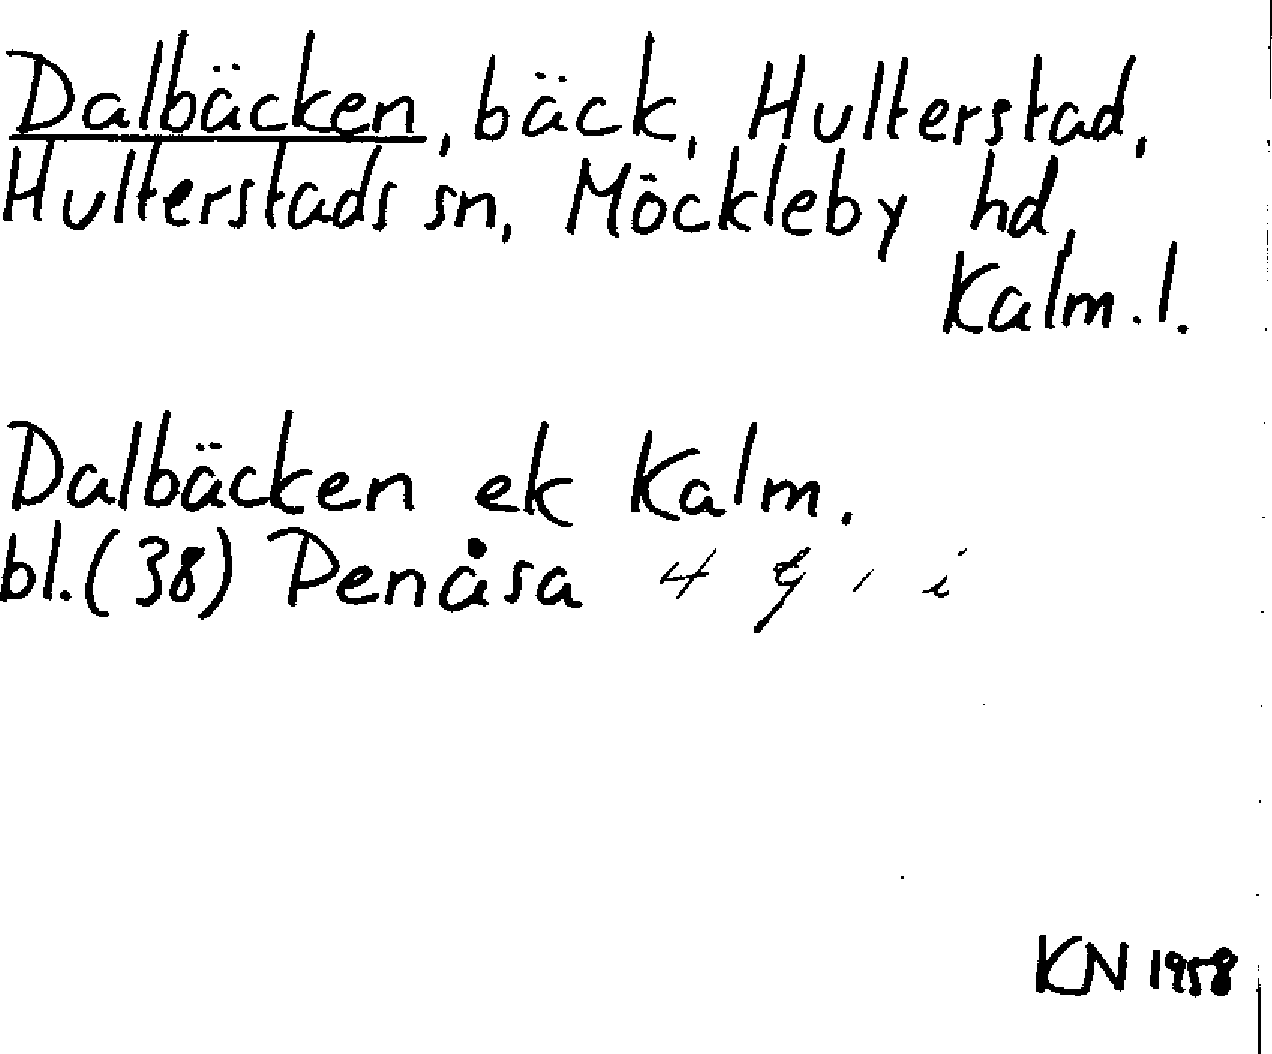 Dalbäcken, bäck, Hulterstad,
Hulterstads sn, Möckleby hd,
Kalm. l.
Dalbäcken ek Kalm.
bl. (38) Penåsa 4 g, i
KN 1958